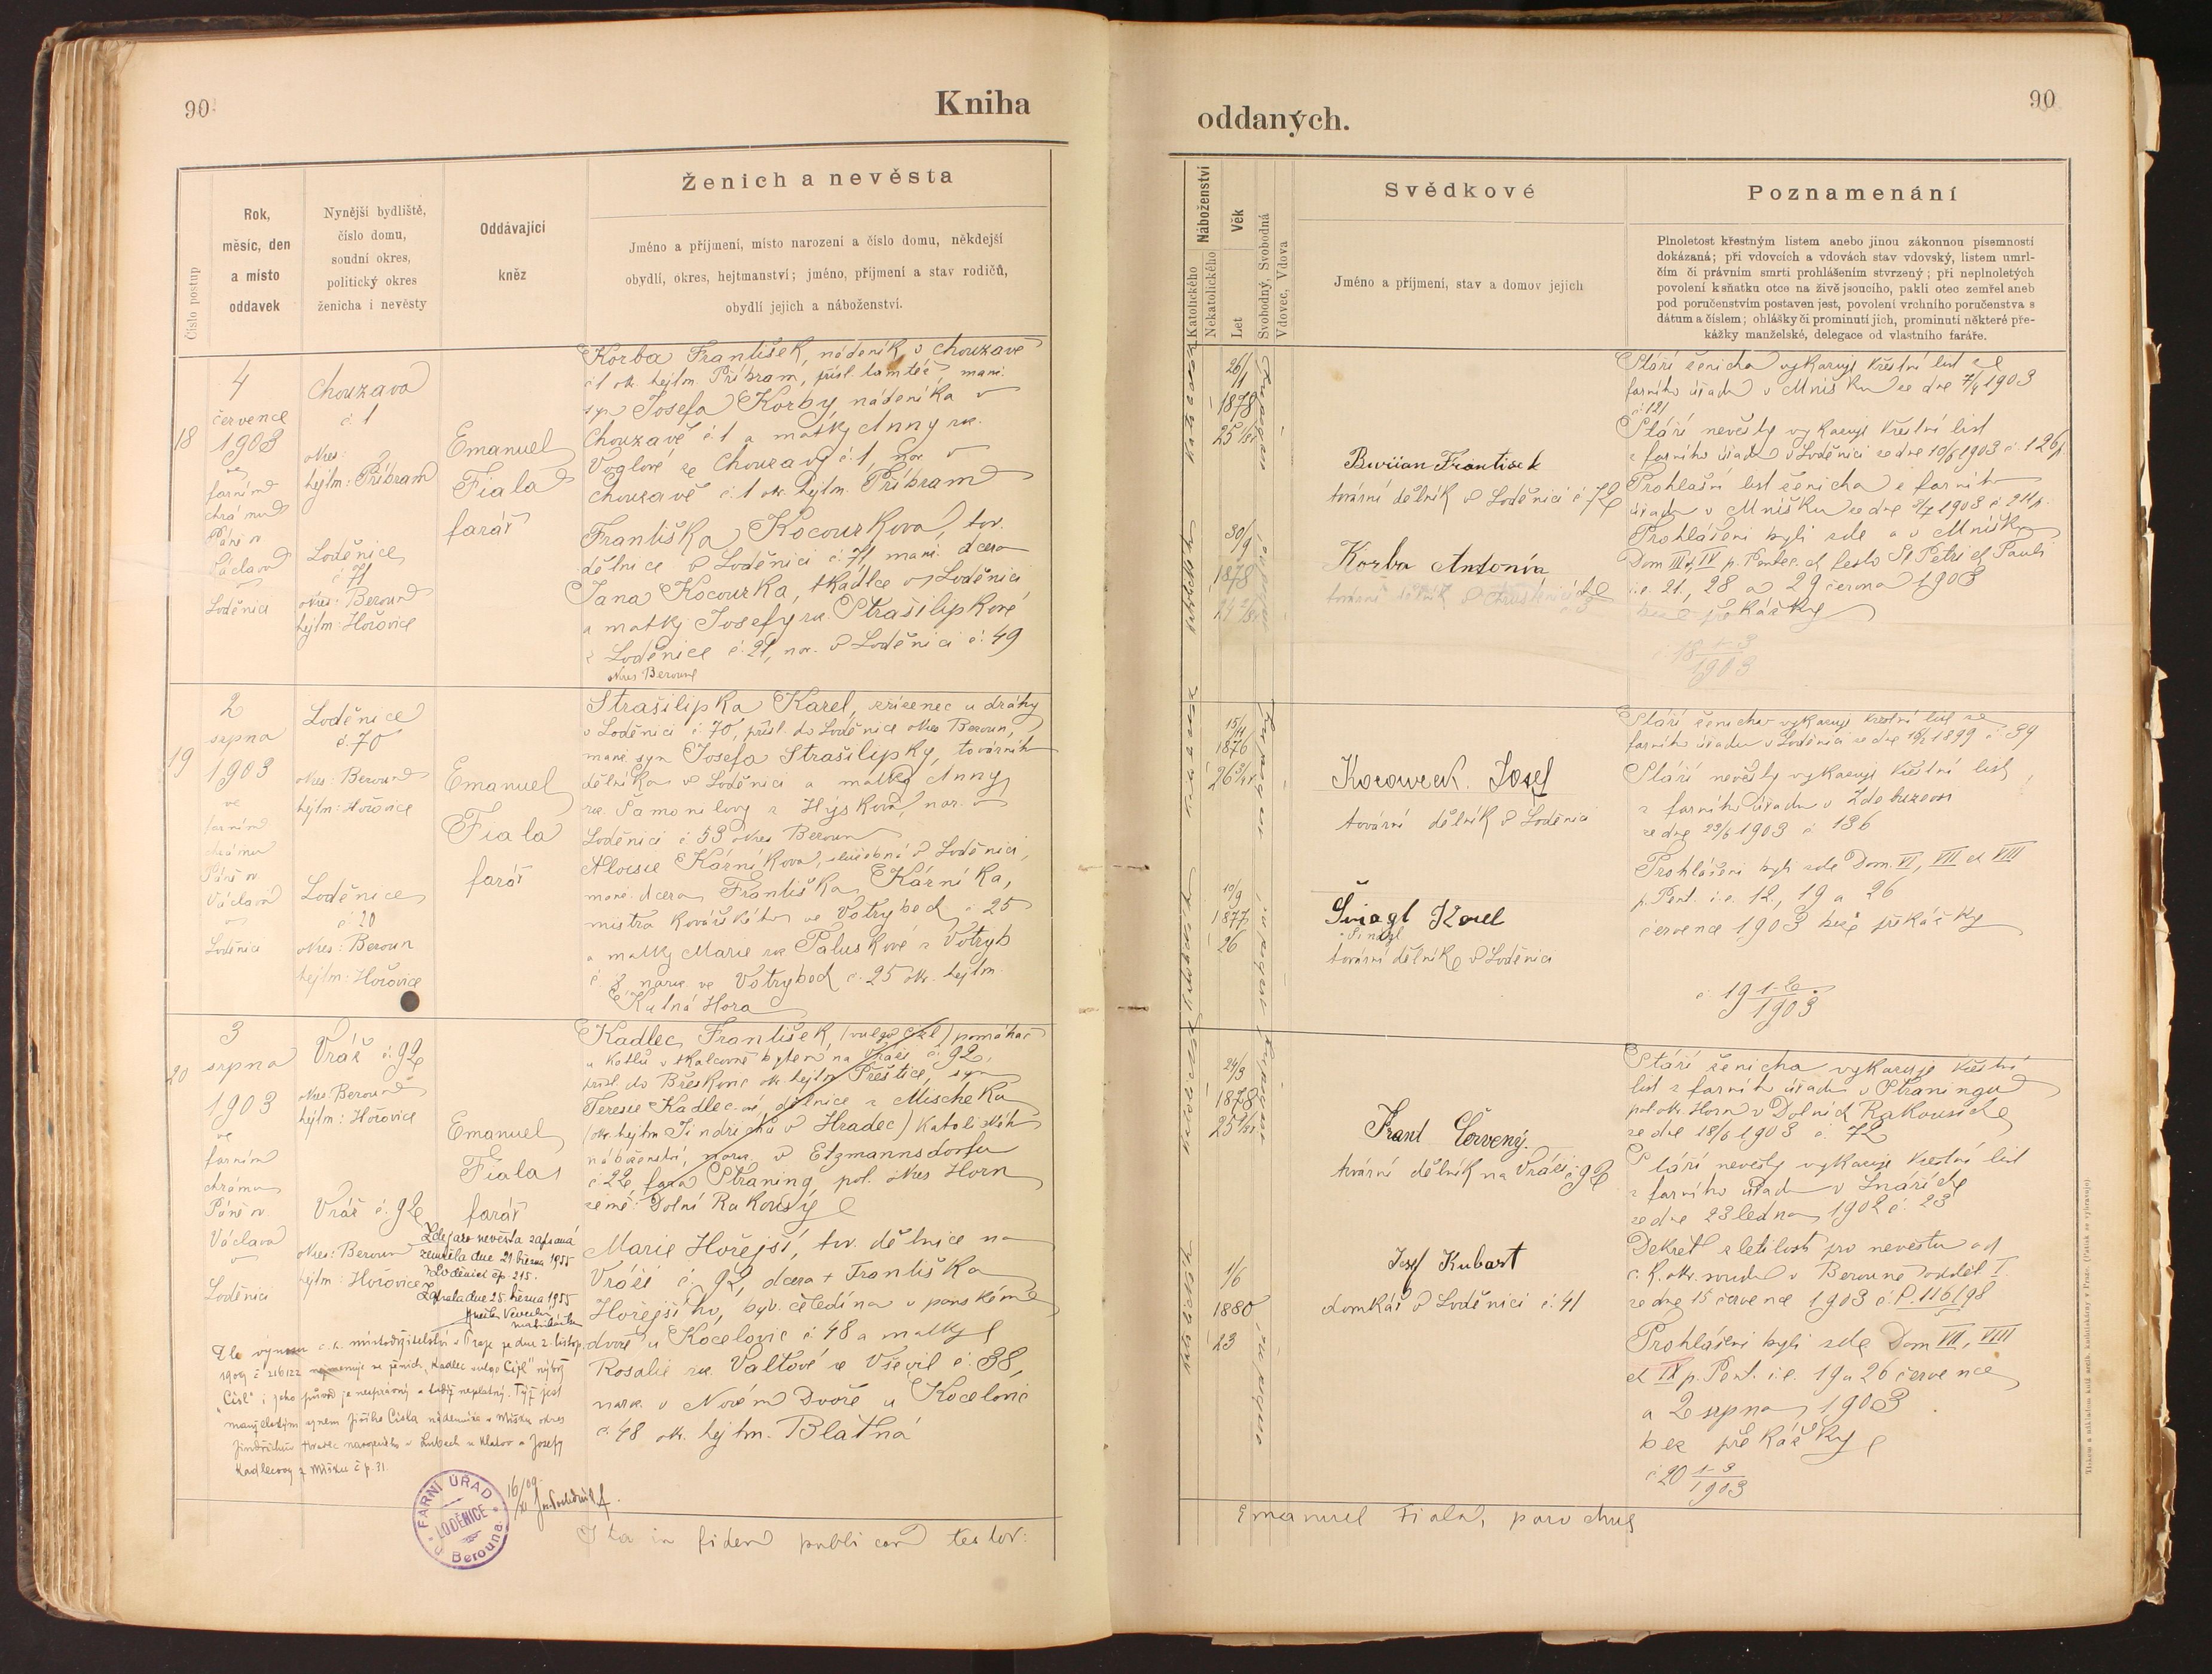 90
Kniha
Číslo postup
Rok,
měsíc, den
a místo
oddavek
Nynější bydliště,
číslo domu,
soudní okres,
politický okres
ženicha i nevěsty
Oddávající
kněz
Ženich a nevěsta
Jméno a příjmení, místo narození a číslo domu, někdejší
obydlí, okres, hejtmanství; jméno, příjmení a stav rodičů,
obydlí jejich a náboženství.
18
4
července
1903
ve
farním
chrámu
Páně sv.
Václava
v
Loděnici
Chouzava
č. 1
okres:
hejtm: Příbram
Loděnice
č. 71
okres: Beroun
hejtm: Hořovice
Emanuel
Fiala
farář
Korba František, nádeník v Chouzavě
č 1 ok. hejtm. Příbram, přísl. tamtéž, manž.
syn Josefa Korby, nádeníka v
Chouzavě č. 1 a matky Anny roz.
Voglové ze Chouzavy č. 1, nar. v
Chouzavě č. 1 ok. hejtm. Příbram
Františka Kocourkova, tov.
dělnice v Loděnici č. 71, manž. dcera
Jana Kocourka, tkadlce v Loděnici
a matky Josefy roz. Strašilipkové
z Loděnice č. 21, nar. v Loděnici č. 49
okres Beroun
19
2
srpna
1903
ve
farním
chrámu
Páně sv.
Václava
v
Loděnici
Loděnice
č. 70
okres: Beroun
hejtm: Hořovice
Loděnice
č 20
okres: Beroun
hejtm: Hořovice
Emanuel
Fiala
farář
Strašilipka Karel, zřízenec u dráhy
v Loděnici č. 70, přísl. do Loděnice okres Beroun,
manž. syn Josefa Strašilipky, továrního
dělníka v Loděnici a matky Anny
roz. Šamonilovy z Hýskova, nar. v
Loděnici č 53 okres Beroun
Aloisie Kárníkova, služebná v Loděnici,
manž. dcera Františka Kárníka,
mistra kovářského ve Votrybech č. 25
a matky Marie roz. Paluskové z Votryb
č. 3, naroz. ve Votrybech č. 25 ok. hejtm.
Kutná Hora
20
3
srpna
1903
ve
farním
chrámu
Páně sv.
Václava
v
Loděnici
Vráž č. 92
okres: Beroun
hejtm: Hořovice
Vráž č. 92
okres: Beroun
hejtm: Hořovice
Emanuel
Fiala
farář
Kadlec František, (vulgo Cisl) pomáhač
u kotlů v tkalcovně bytem na Vráži č. 92,
přísl. do Břeskovic ok. hejtm Přeštice, syn
Teresie Kadlecové, dělnice z Mischeka
(ok. hejtm Jindřichův Hradec) katolického
náboženství, naroz. v Etzmannsdorfu
č 22 fara Straning pol. okres Horn
země: Dolní Rakousy
Marie Hořejší, tov. dělnice na
Vráži č. 92, dcera + Františka
Hořejšího, býv. čeledína v panském
dvoře u Kocelovic č. 48 a matky
Rosalie roz. Valtové ze Vševil č. 38,
naroz. v Novém Dvoře u Kocelovic
č. 48 ok. hejtm. Blatná
Zde jako nevěsta zapsaná
zemřela dne 21. března 1955
v Loděnici čp. 215.
Zapsala dne 25. března 1955
matrikářka
Dle výnosu c. k. místodržitelství v Praze ze dne 2. listop.
1909 č 216122 nejmenuje se ženich „Kadlec vulgo Cisl“ nýbrž
„Cisl“ i jeho původ je nesprávný a tudíž neplatný. Týž jest
manželským synem Jiřího Cisla nádeníka z Mišku okres
Jindřichův Hradec narozeného v Lubech u Klatov a Josefy
Kadlecovy z Mišku č p. 31.
FARNÍ ÚŘAD
LODĚNICE
u Berouna
16/XI 09.
Ita in fidem publicam testor:
90
oddaných.
Náboženství
Katolického
Nekatolického
Věk
Let
Svobodný, Svobodná
Vdovec, Vdova
Svědkové
Jméno a příjmení, stav a domov jejich
Poznamenání
Plnoletost křestným listem anebo jinou zákonnou písemností
dokázaná; při vdovcích a vdovách stav vdovský, listem umrl-
čím či právním smrti prohlášením stvrzený; při neplnoletých
povolení k sňatku otce na živě jsoucího, pakli otec zemřel aneb
pod poručenstvím postaven jest, povolení vrchního poručenstva s
dátum a číslem; ohlášky či prominutí jich, prominutí některé pře-
kážky manželské, delegace od vlastního faráře.
katolické
26/1
1878
svobodný
Burian František
tovární dělník v Loděnici č. 72
30/9
1878
Korba Antonín
tovární dělník v Chrustenicích
č 3
Stáří ženicha vykazuje křestní list z
farního úřadu v Mníšku ze dne 7/4 1903
č. 121
Stáří nevěsty vykazuje křestní list
z farního úřadu v Loděnici ze dne 10/6 1903 č. 126
Prohlašní list ženicha z farního
úřadu v Mníšku ze dne 2/7 1903 č 214
Prohlášeni byli zde a v Mníšku
Dom III et IV p. Pentec. et festo St. Petri et Pauli
i.e. 21., 28 a 29 června 1903
beze překážky
č 18 1-3/1903
15/11
1876
Kocourek Josef
tovární dělník v Loděnici
10/9
1877
26
Šnajgl Karel
tovární dělník v Loděnici
Stáří ženicha vykazuje křestní list ze
farního úřadu v Loděnici ze dne 1899 č 99
Stáří nevěsty vykazuje křestní list
z farního úřadu v Zdebuzevsi
ze dne 23/6 1903 č 136
Prohlášeni byli zde Dom. VI, VII et VIII
p. Pent. i.e. 12, 19 a 26
července 1903 beze překážky
č. 19 1-2/1903
24/3
1878
Frant Červený.
tovární dělník na Vráži č 92
1/6
1880
23
Josef Kubart
domkář v Loděnici č. 41
Stáří ženicha vykazuje křestní
list z farního úřadu v Straningu
pol. okr. Horn v Dolních Rakousích
ze dne 18/6 1903 č. 72
Stáří nevěsty vykazuje křestní list
z farního úřadu v Lnářích
ze dne 23 ledna 1902 č. 23
Dekret zletilosti pro nevěstu od
c. k. okr. soudu v Berouně odděl. I.
ze dne 15 července 1903 č. P. 116/98
Prohlášeni byli zde Dom VII, VIII
et IX p. Pent. i.e. 19 a 26 července
a 2 srpna 1903
bez překážky
č 20 1-3/1903
Emanuel Fiala, parochus